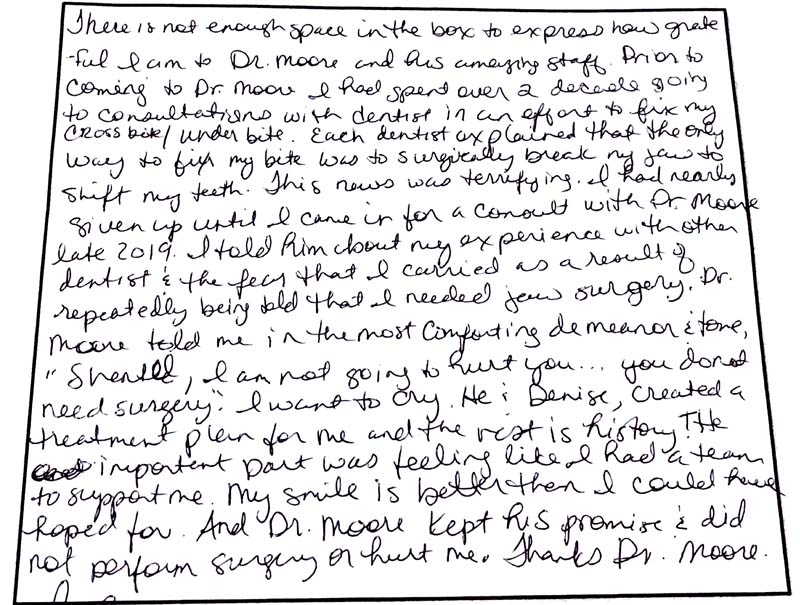 There is not enough space in the box to express how grate
-ful I am to Dr. Moore and his amazing staff. Prior to
coming to Dr. Moore I had spent over a decade going
to consultations with dentist in an effort to fix my
cross bite/under bite. Each dentist explained that the only
way to fix my bite was to surgically break my jaw to
shift my teeth. This news was terrifying. I had nearly
given up until I came in for a consult with Dr Moore
late 2019. I told him about my experience with other
dentist & the fear that I carried as a result of
repeatedly being told that I needed jaw surgery. Dr.
Moore told me in the most comforting demeanor & tone,
" I am not going to hurt you... you do not
need surgery". I want to cry. He & Denise, created a
treatment plan for me and the rest is history! The
important part was feeling like I had a team
to support me. My smile is better then I could have
hoped for. And Dr. Moore kept his promise & did
not perform surgery or hurt me. Thanks Dr. Moore.